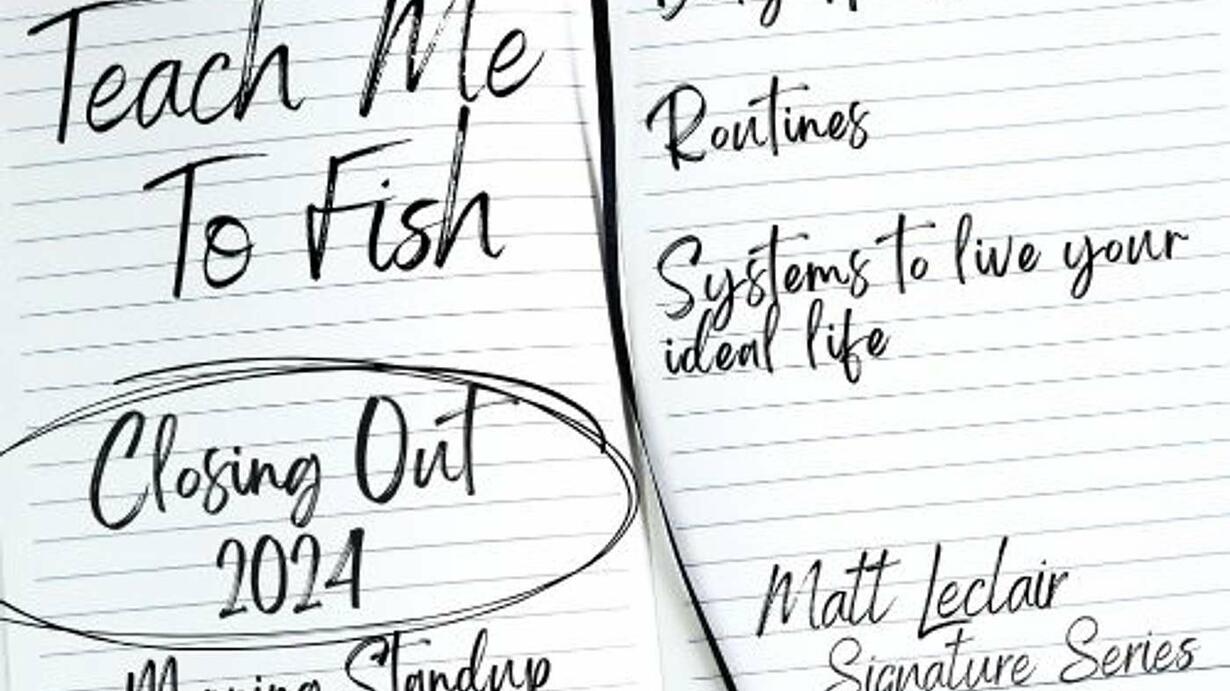 Teach Me
To Fish
Closing Out
2024
Standup
Routines
Systems to live your
ideal life
Matt Leclair
Signature Series